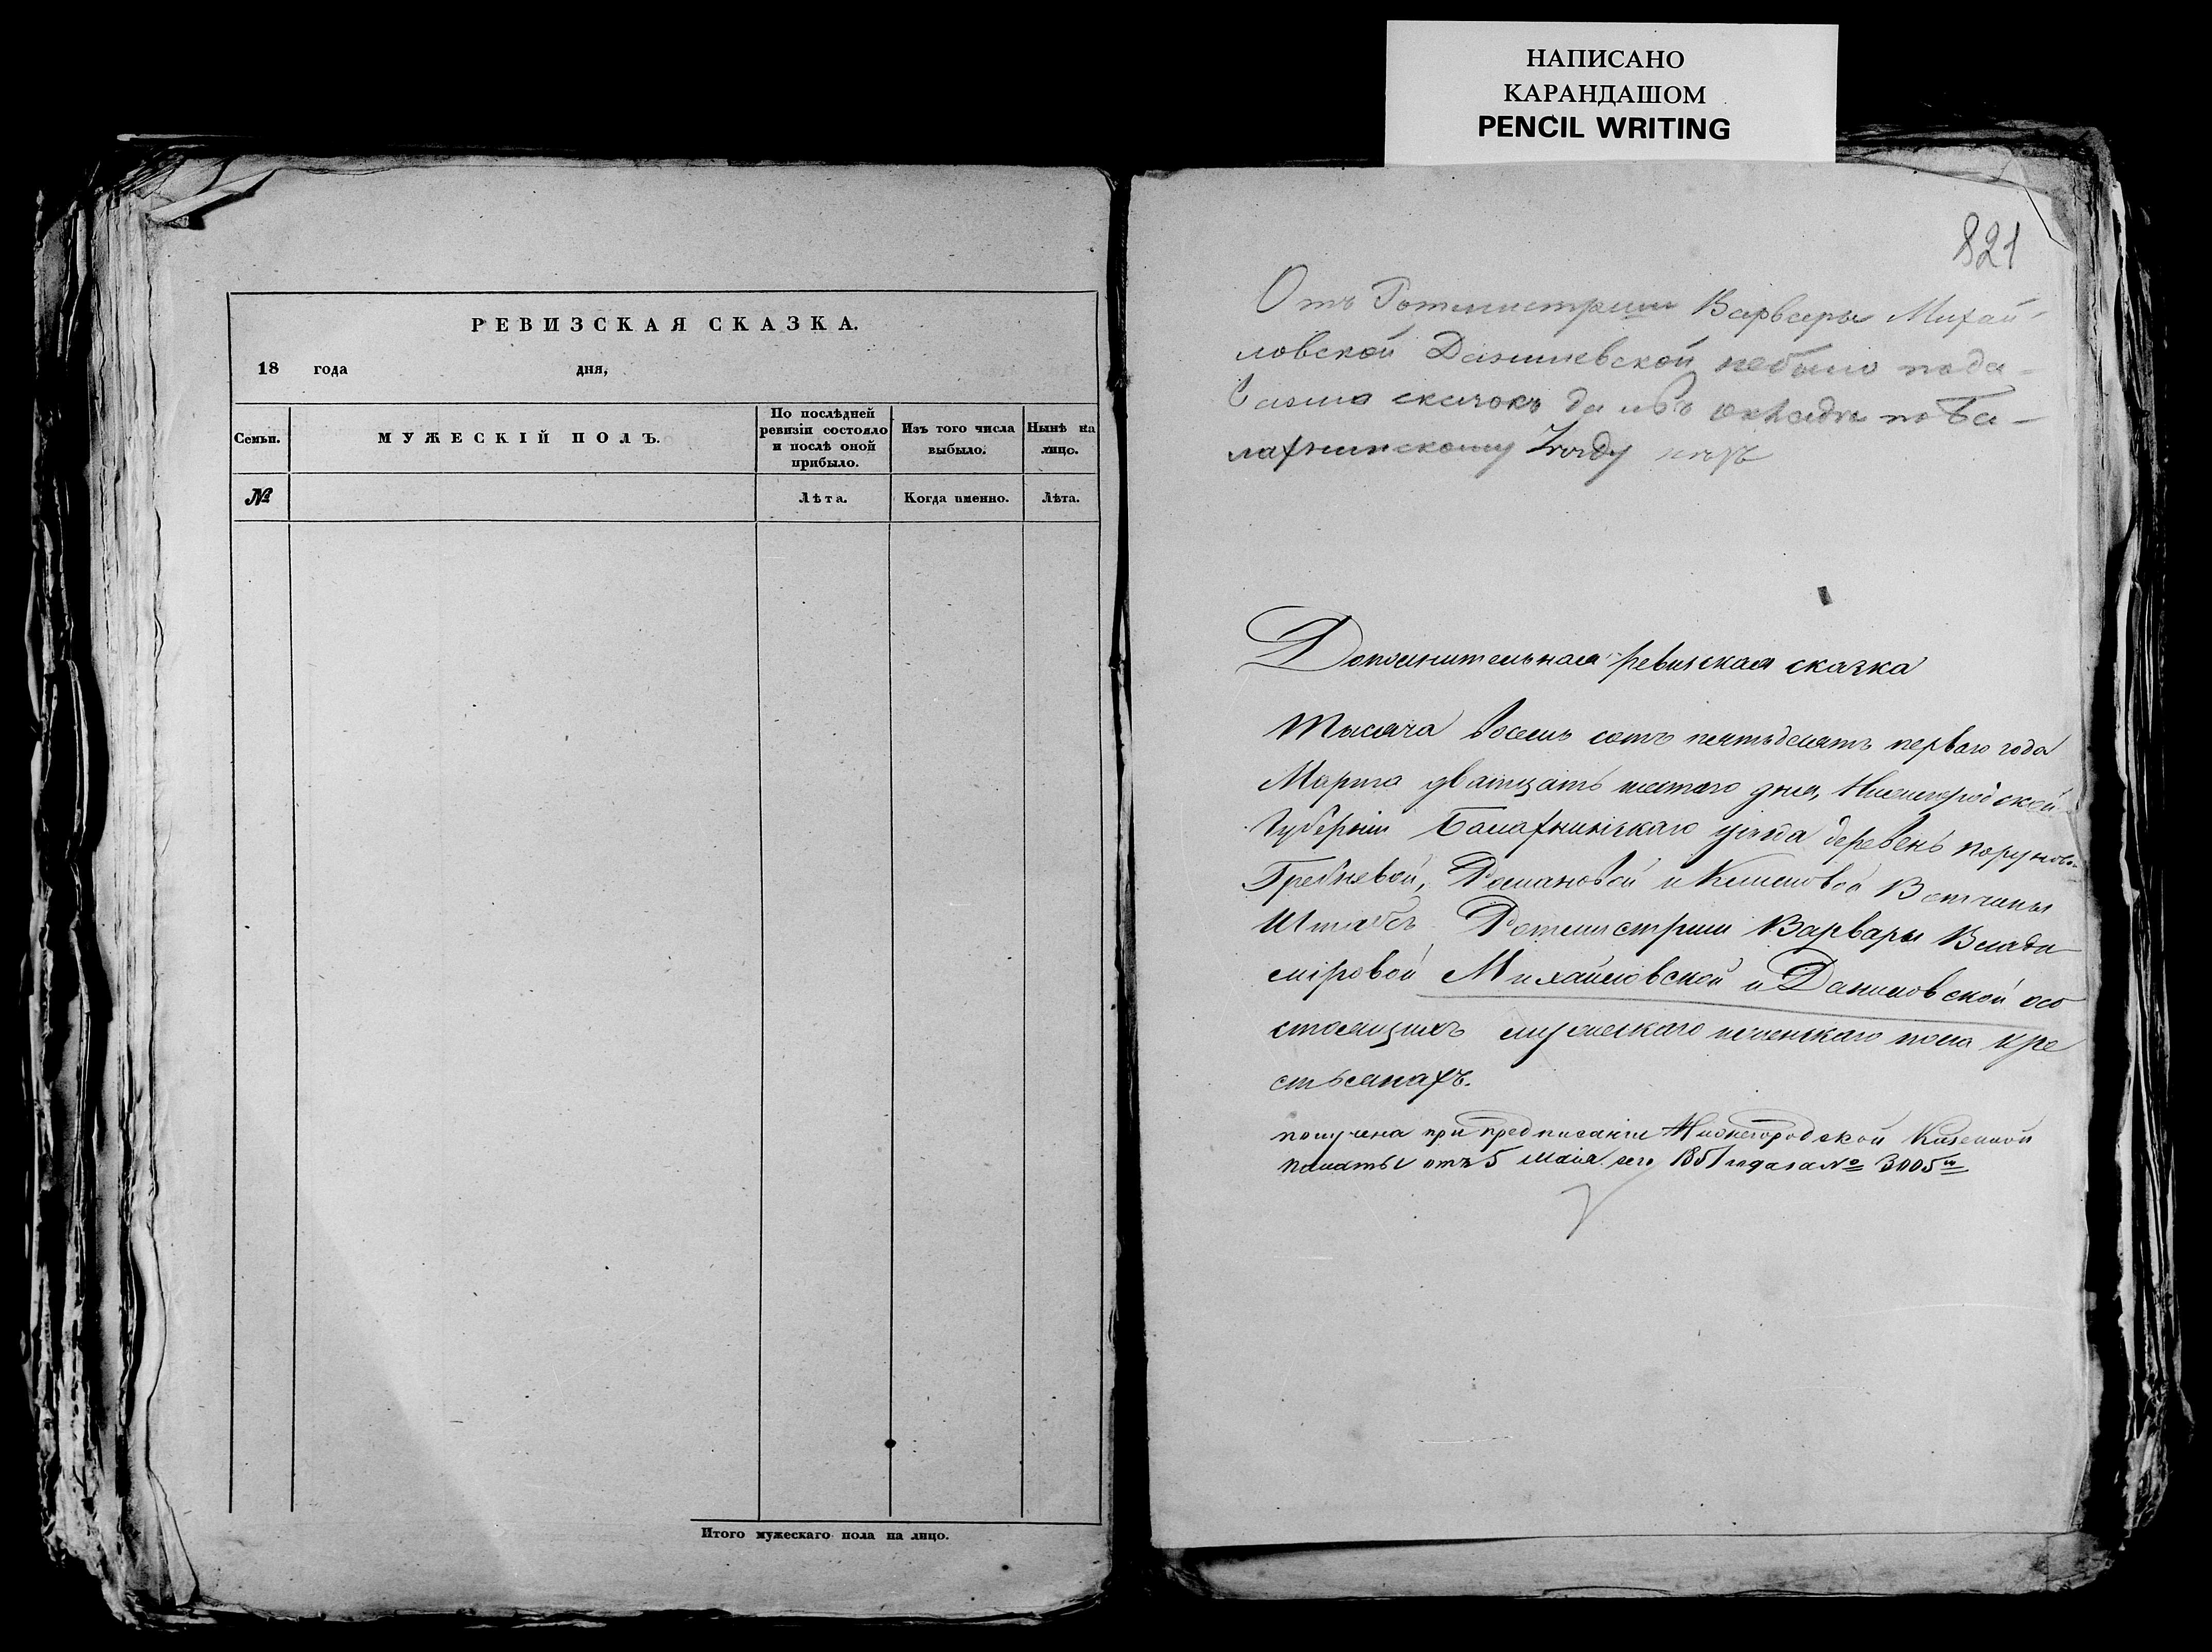 НАПИСАНО
КАРАНДАШОМ
PENCIL WRITING
РЕВИЗСКАЯ СКАЗКА.
18 года дня,
Семьи. МУЖЕСКІЙ ПОЛЪ. По послѣдней ревизіи состояло и послѣ оной прибыло. Изъ того числа выбыло. Нынѣ на лицо.
№ Лѣта. Когда именно. Лѣта.
Итого мужескаго пола на лицо.
821
Отъ Ротмистрши Варвары Михай-
ловской Данилевской небыло пода-
ваемо сказокъ да и въ окладе по Ба-
лахнинскому уезду
Дополнительная ревизская сказка
Тысяча восемь сотъ пятьдесятъ перваго года
Марта дватцать шестаго дня, Нижегородской
Губерніи Балахнинскаго уѣзда деревень
Гребневой, Романовой и Вотчины
Штабъ Ротмистрши Варвары Влади
міровой Михайловской и Даниловской осо
стоящихъ мужескаго и женскаго пола кре
стьянахъ.
получена при предписаніи Нижегородской Казенной
палаты отъ 5 маія сего 1851 года за № 3005м